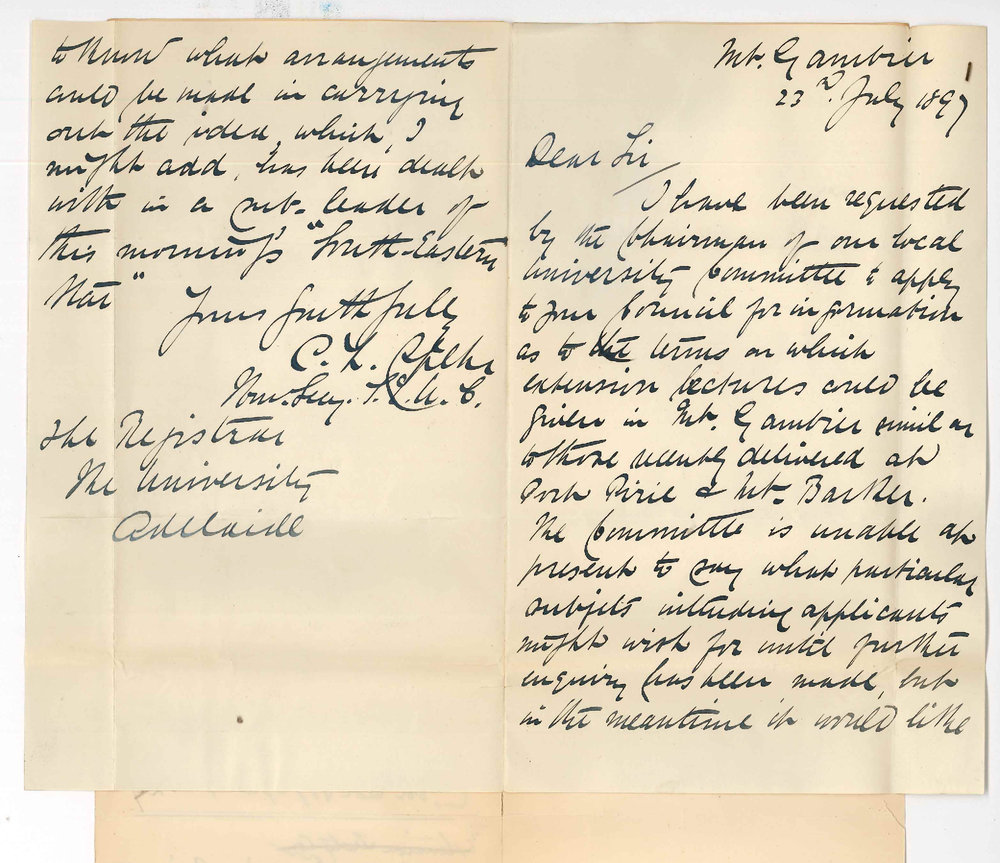 Mt. Gambier
23rd. July 1897
Dear Sir
I have been requested
by the Chairman of our local
University Committee to apply
to your Council for information
as to the terms on which
extension lectures could be
given in Mt. Gambier similar
to those recently delivered at
Port Pirie & Mt. Barker.
The Committee is unable at
present to say what particular
subjects intending applicants
might wish for until further
enquiry has been made, but
in the meantime it would like
to know what arrangements
could be made in carrying
out the idea, which, I
might add, has been dealt
with in a sub-leader of
this morning's "South-Eastern
Star"
Yours faithfully
C. L.
Hon. Secy.
The Registrar
The University
Adelaide